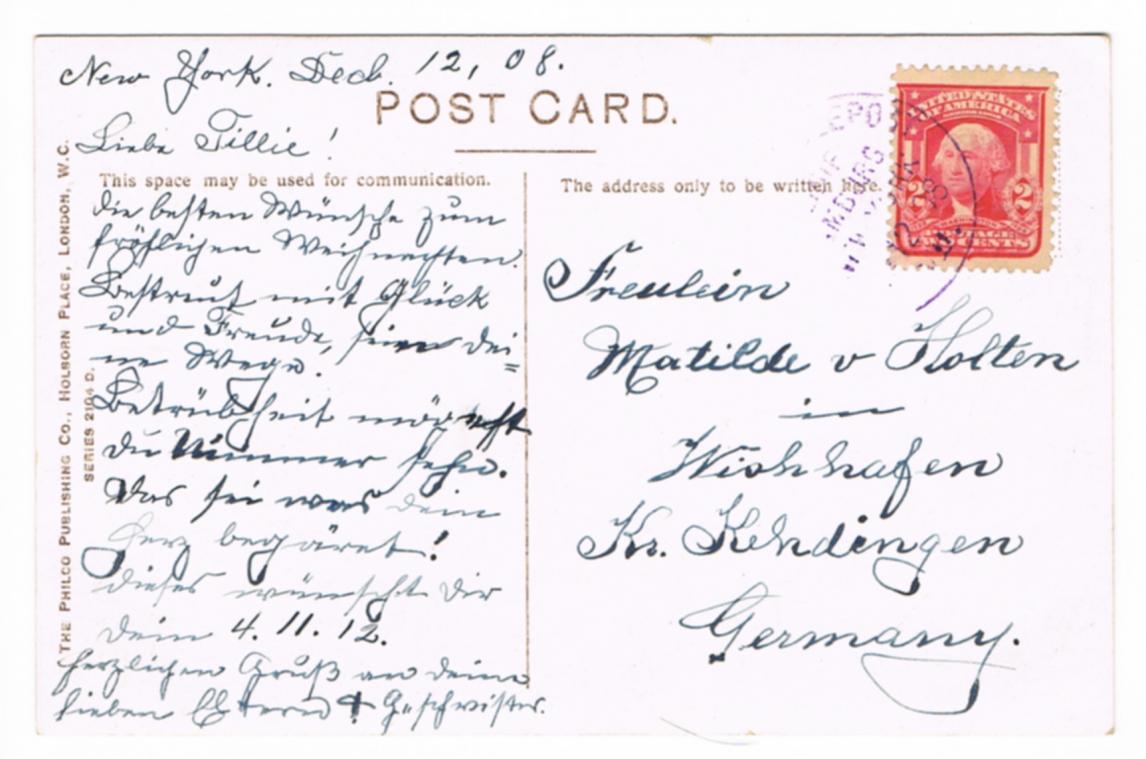 New York. Decb. 12, 08.
POST CARD.
Liebe Tillie!
This space may be used for communication.
die besten Wünsche zum
fröhlichen Weihnachten.
Bestreut mit Glück
und Freude, sein dei=
ne Wege.
Betrübheit mögest
du Nimmer sehn.
Das sei was dein
Herz begäret!
dieses wünscht dir
dein 4. 11. 12.
herzlichen Gruß an deine
lieben Eltern & Geschwister.
THE PHILCO PUBLISHING CO., HOLBORN PLACE, LONDON, W.C.
SERIES 2104 D.
The address only to be written here.
UNITED STATES
OF AMERICA
2 2
CENTS
Freulein
Matilde v Holten
in
Wishhafen
Kr. Kehdingen
Germany.